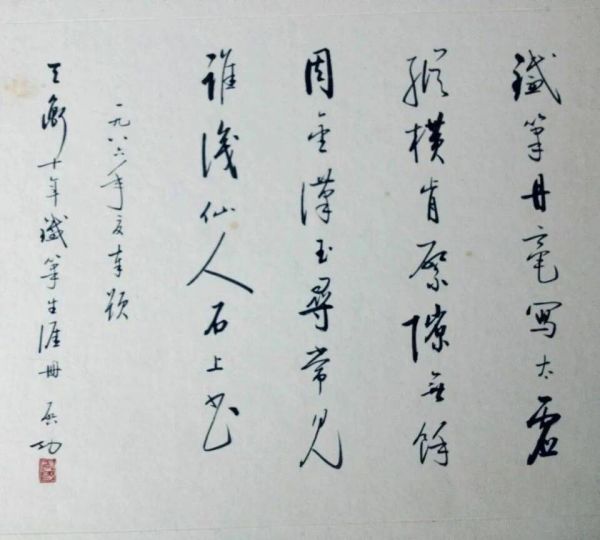 鐵筆丹毫寫太虛
縱橫肯綮隙無餘
周金漢玉尋常見
誰識仙人石上書
一九八六年夏奉題
天衡十年鐵筆生涯冊 啓功